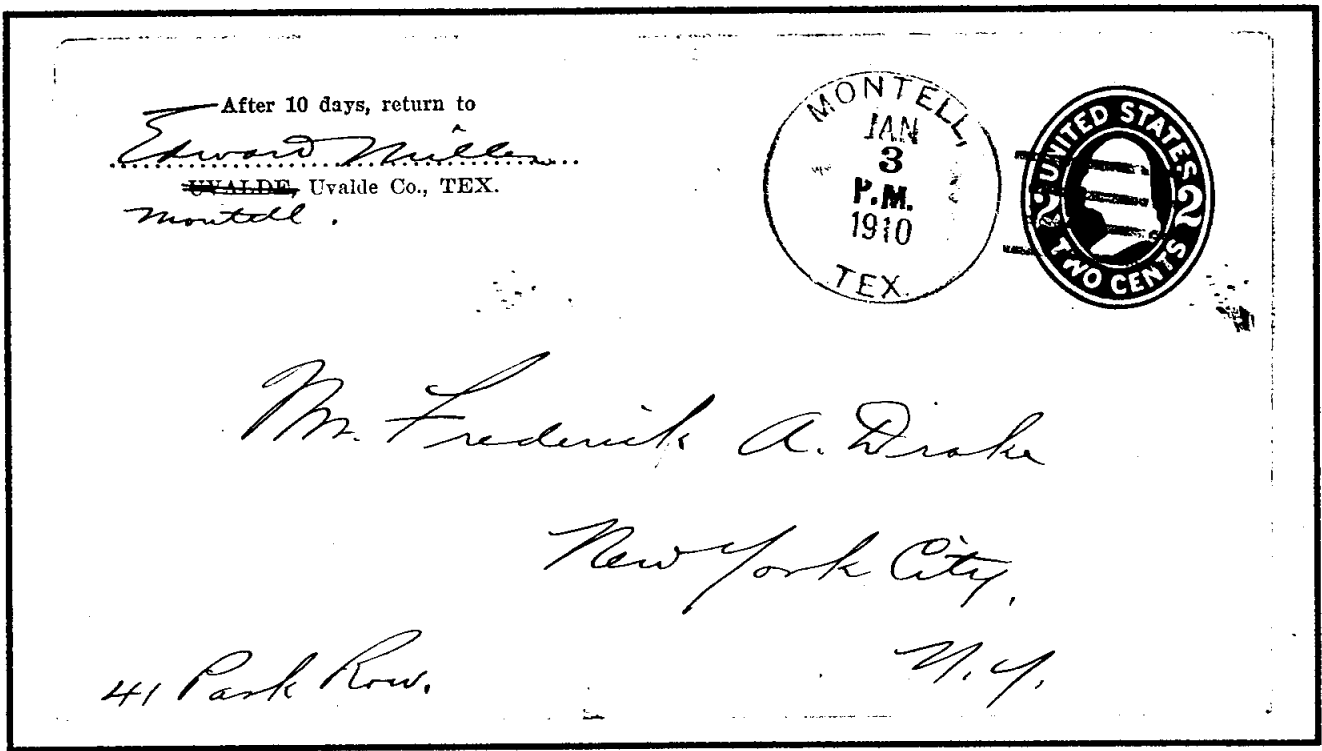 After 10 days, return to
Edward Miller
UVALDE, Uvalde Co., TEX.
Montell.
MONTELL,
JAN
3
P.M.
1910
TEX.
UNITED STATES
2 2
TWO CENTS
Mr. Frederick A. Drake
New York City,
N.Y.
41 Park Row.